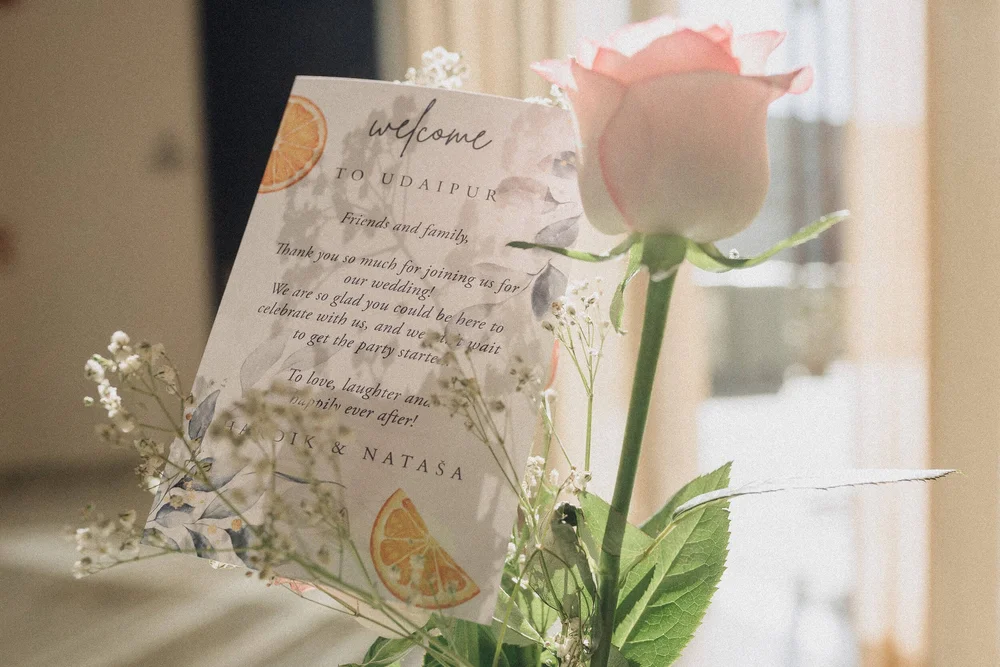 welcome
TO UDAIPUR
Friends and family,
Thank you so much for joining us for
our wedding!
We are so glad you could be here to
celebrate with us, and we wait
to get the party started
To love, laughter and
happily ever after!
& NATAŠA